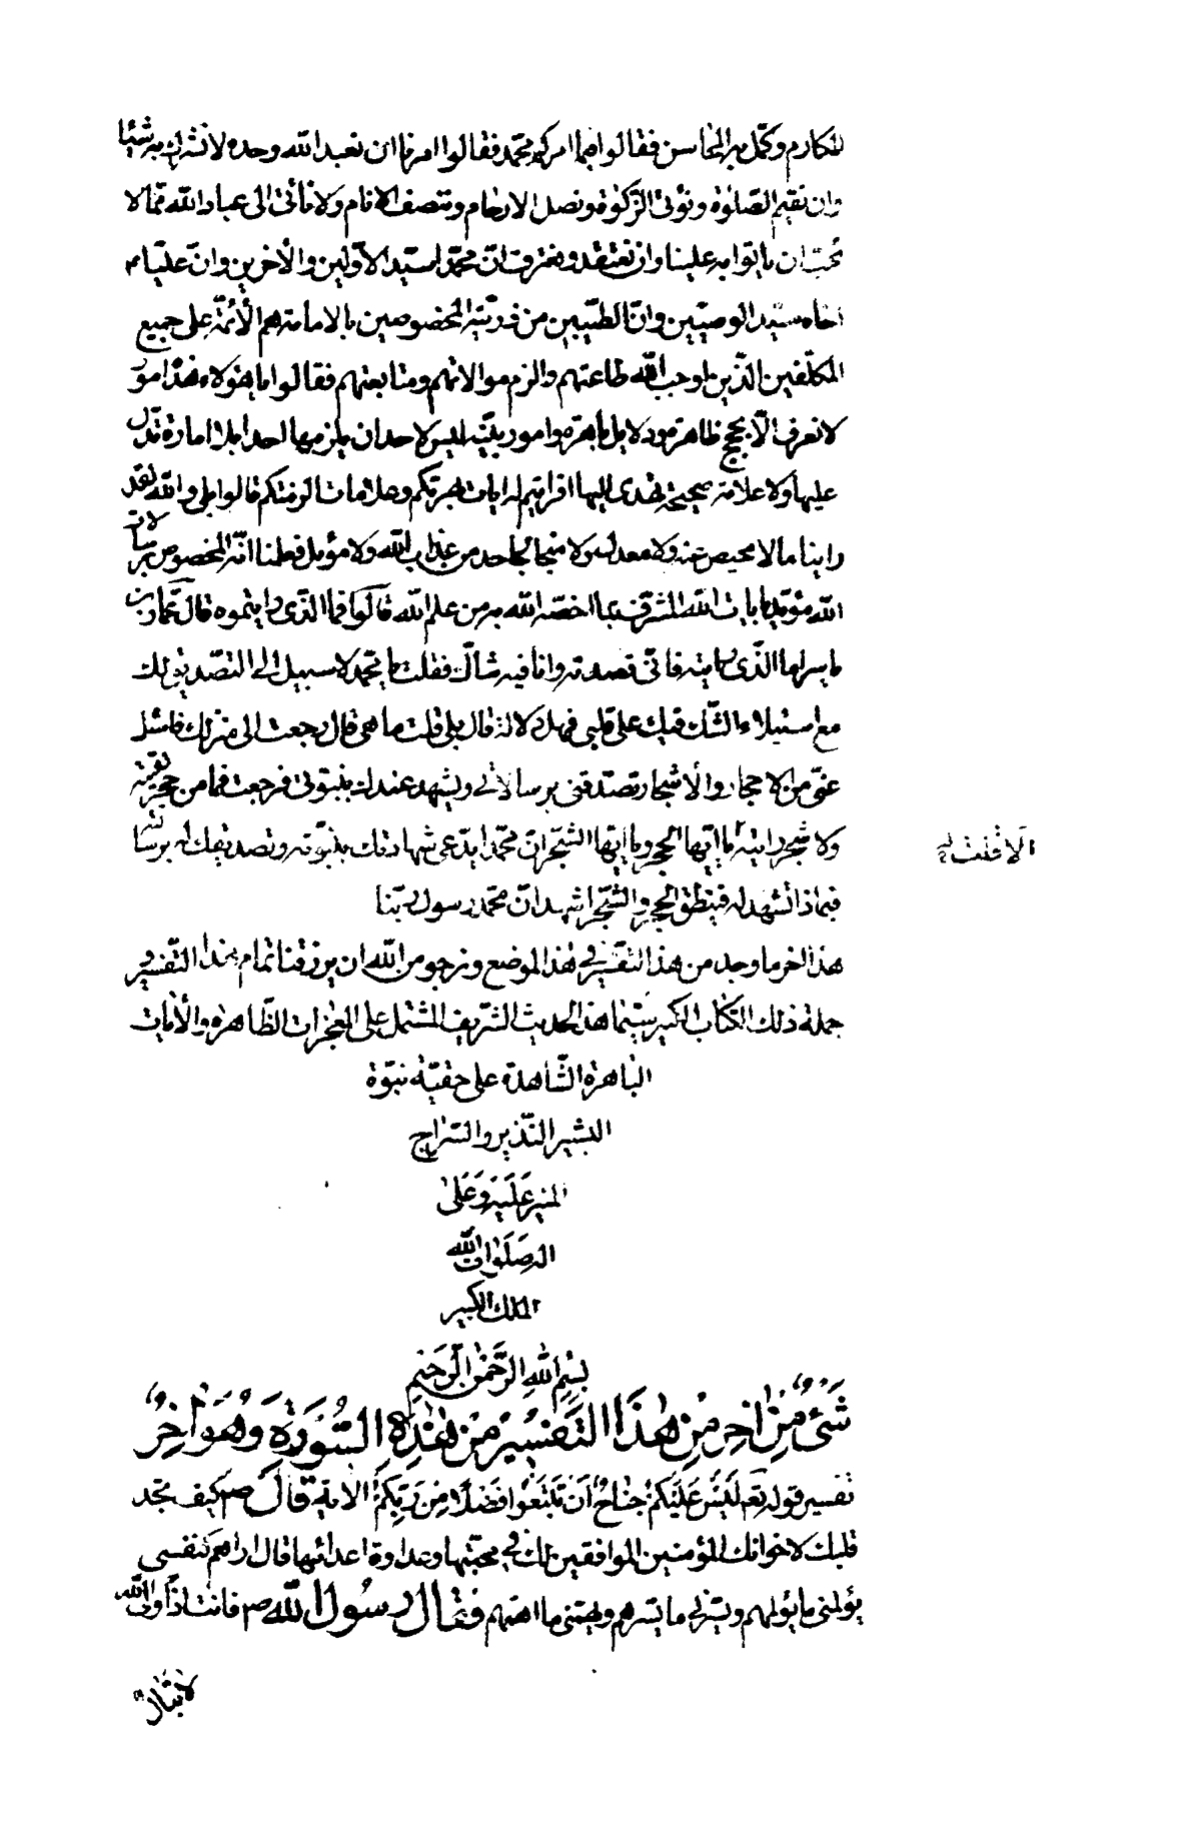 المكارم وكمل به المحاسن فقالوا فيما امركم محمد فقالوا امرنا ان نعبد الله وحده لا نشرك به شيئا
وان نقيم الصلوة ونؤتى الزكوة ونصل الارحام وننصف الانام ولا نأتى الى عباد الله بما لا
نحب ان ياتوا به علينا وان نعتقد ونعترف ان محمدا سيد الاولين والآخرين وان عليا ع
اخاه سيد الوصيين وان الطيبين من ذريته المخصوصين بالامامة هم الأئمة على جميع
المكلفين الذين اوجب الله طاعتهم والزم موالاتهم ومتابعتهم فقالوا يا هؤلاء هذا امور
لا تعرف الا بحجج ظاهرة ودلايل باهرة وامور بينة ليس لاحد ان يلزمها احدا بلا امارة تدل
عليها ولا علامة صحيحة تهدى اليها افرايتم له ايات بهرتكم وعلامات الزمتكم قالوا بلى والله لقد
راينا ما لا محيص عنه ولا معدل ولا منجا لجاحده من عذاب الله ولا مؤيل فعلمنا انه المخصوص برسالات
الله مؤيد بايات الله المشرف بما اختصه الله به من علم الله قالوا فما الذى رايتموه قال عمار بن
ياسر اما الذى رايته فانى قصدته وانا فيه شاك فقلت يا محمد لا سبيل الى التصديق بك
مع استيلاء الشك فيك على قلبى فهل دلالة قال بلى قلت ما هى قال رجعت الى منزلك فاسئل
عنى من الاحجار والأشجار تصدقنى برسالاتى ويشهد عندك بنبوتى فرجعت فما من حجر لقيته
ولا شجر رايته يا ايها الحجر ويا ايها الشجر ان محمدا يدعى شهادتك بنبوته وتصديقك له برسالته
فبماذا تشهد له فينطق الحجر والشجر اشهد ان محمد رسول ربنا
هذا اخر ما وجد من هذا التفسير فى هذا الموضع ونرجو من الله ان يرزقنا تمام هذا التفسير و
جملة ذلك الكتاب الكبير سيما هذا الحديث الشريف المشتمل على المعجزات الظاهره والأيات
الباهرة الشاهدة على حقية نبوة
البشير النذير والسراج
المنير عَلَيْهِ وَعَلىٰ
اله صَلَوٰات الله
الملك الكبير
بِسْمِ اللهِ الرَّحْمٰنِ الرَّحيمِ
شَئٌ مِنْ اٰخِر مِنْ هٰذَا التَّفسيرُ مِنْ هٰذِهِ السُّورَةِ وَهُوَ اٰخِرُ
تفسير قوله تعم لَيْسَ عَلَيْكُمْ جُنَاحٌ اَنْ تَبْتَغُوا فَضْلًا مِنْ رَبِّكُمْ الاية قال ص كيف تجد
قلبك لاخوانك المؤمنين الموافقين لك فى محبتها وعداوة اعدائها قال اراهم كنفسى
يؤلمنى ما يؤلمهم ويسرنى ما يسرهم ويهمنى ما اهمهم فقال رسول الله ص فانت اذا ولى الله
لا تبال